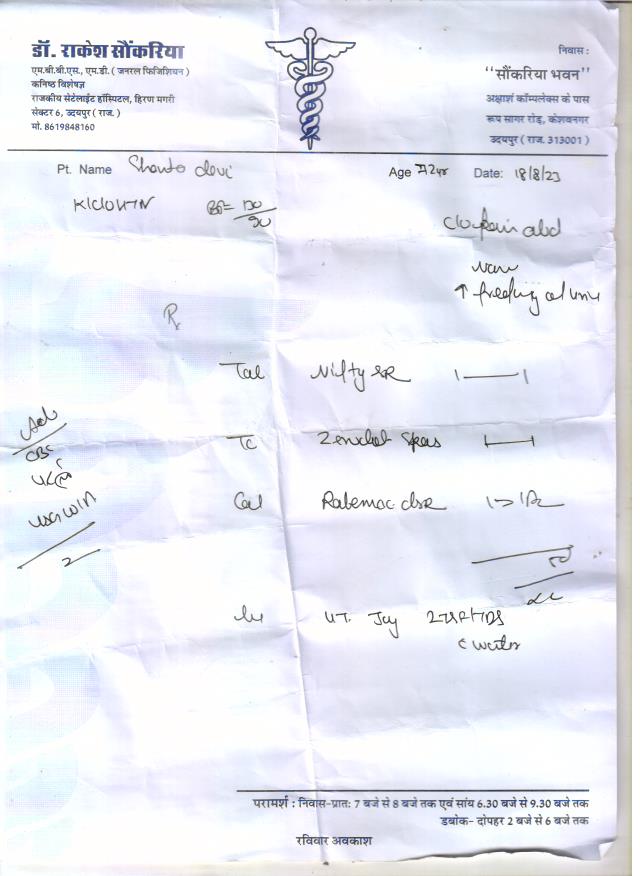 डॉ. राकेश सौंकरिया
एम.बी.बी.एस., एम.डी. ( जनरल फिजिशियन )
कनिष्ठ विशेषज्ञ
राजकीय सेटेलाईट हॉस्पिटल, हिरण मगरी
सेक्टर 6, उदयपुर ( राज. )
मो. 8619848160
निवास :
"सौंकरिया भवन"
अक्षांश कॉम्पलेक्स के पास
रूप सागर रोड़, केशवनगर
उदयपुर ( राज. 313001 )
Pt. Name Shanta devi Age Date: 18/8/23
K/C/O HTN BP= 130/90
C/o pain abd
↑ freq of urine
Rx
Tab Nifty SR 1—1
Adv
CBC
Tc Spas 1—1
USG W/A
Cap Rabemac dsr
2
UT. Joy 2 TSF TDS
c water
परामर्श : निवास-प्रात: 7 बजे से 8 बजे तक एवं सांय 6.30 बजे से 9.30 बजे तक
डबोक- दोपहर 2 बजे से 6 बजे तक
रविवार अवकाश